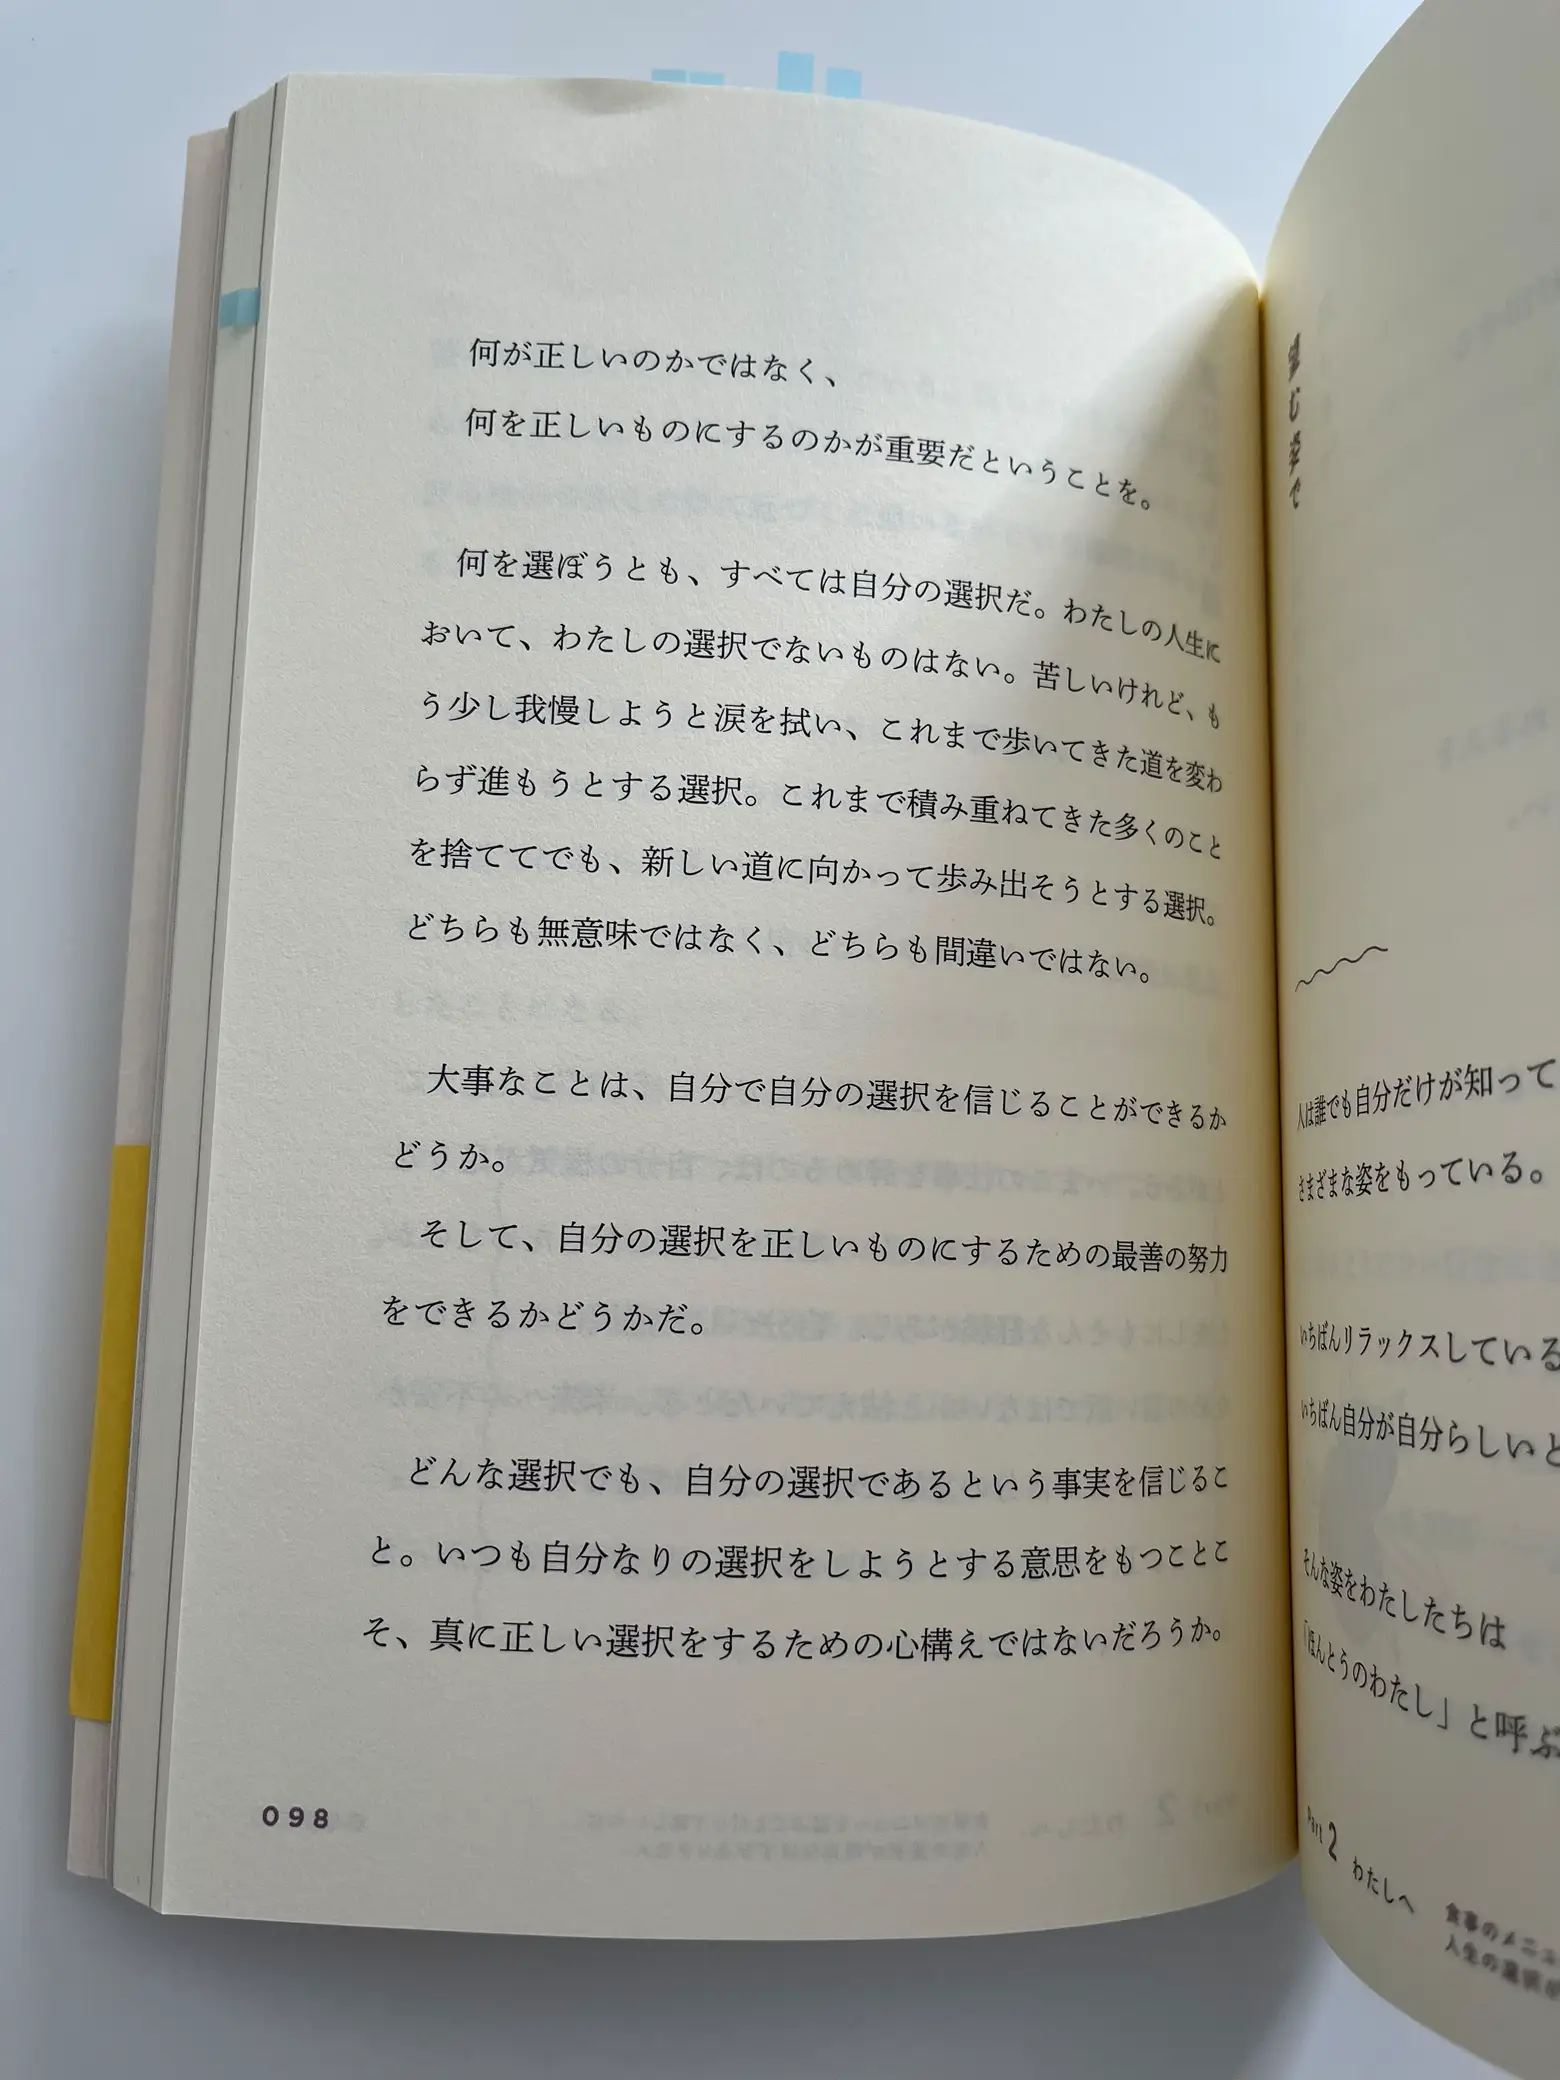 何が正しいのかではなく、
何を正しいものにするのかが重要だということを。
何を選ぼうとも、すべては自分の選択だ。わたしの人生に
おいて、わたしの選択でないものはない。苦しいけれど、も
う少し我慢しようと涙を拭い、これまで歩いてきた道を変わ
らず進もうとする選択。これまで積み重ねてきた多くのこと
を捨ててでも、新しい道に向かって歩み出そうとする選択。
どちらも無意味ではなく、どちらも間違いではない。
大事なことは、自分で自分の選択を信じることができるか
どうか。
そして、自分の選択を正しいものにするための最善の努力
をできるかどうかだ。
どんな選択でも、自分の選択であるという事実を信じるこ
と。いつも自分なりの選択をしようとする意思をもつことこ
そ、真に正しい選択をするための心構えではないだろうか。
098
望む姿で
人は誰でも自分だけが知って
さまざまな姿をもっている。
いちばんリラックスしている
いちばん自分が自分らしいと
そんな姿をわたしたちは
「ほんとうのわたし」と呼ぶ
Part 2 わたしへ
食事のメニュ
人生の選択